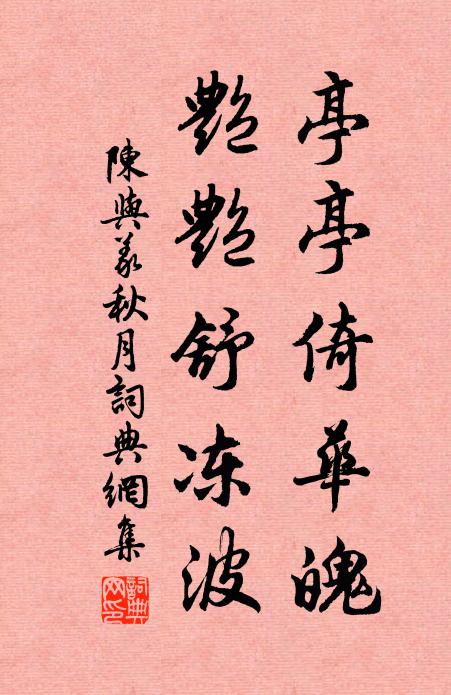 亭亭倚華魄
艷艷舒凍波
陳與義秋月詞典網集
詞典網印